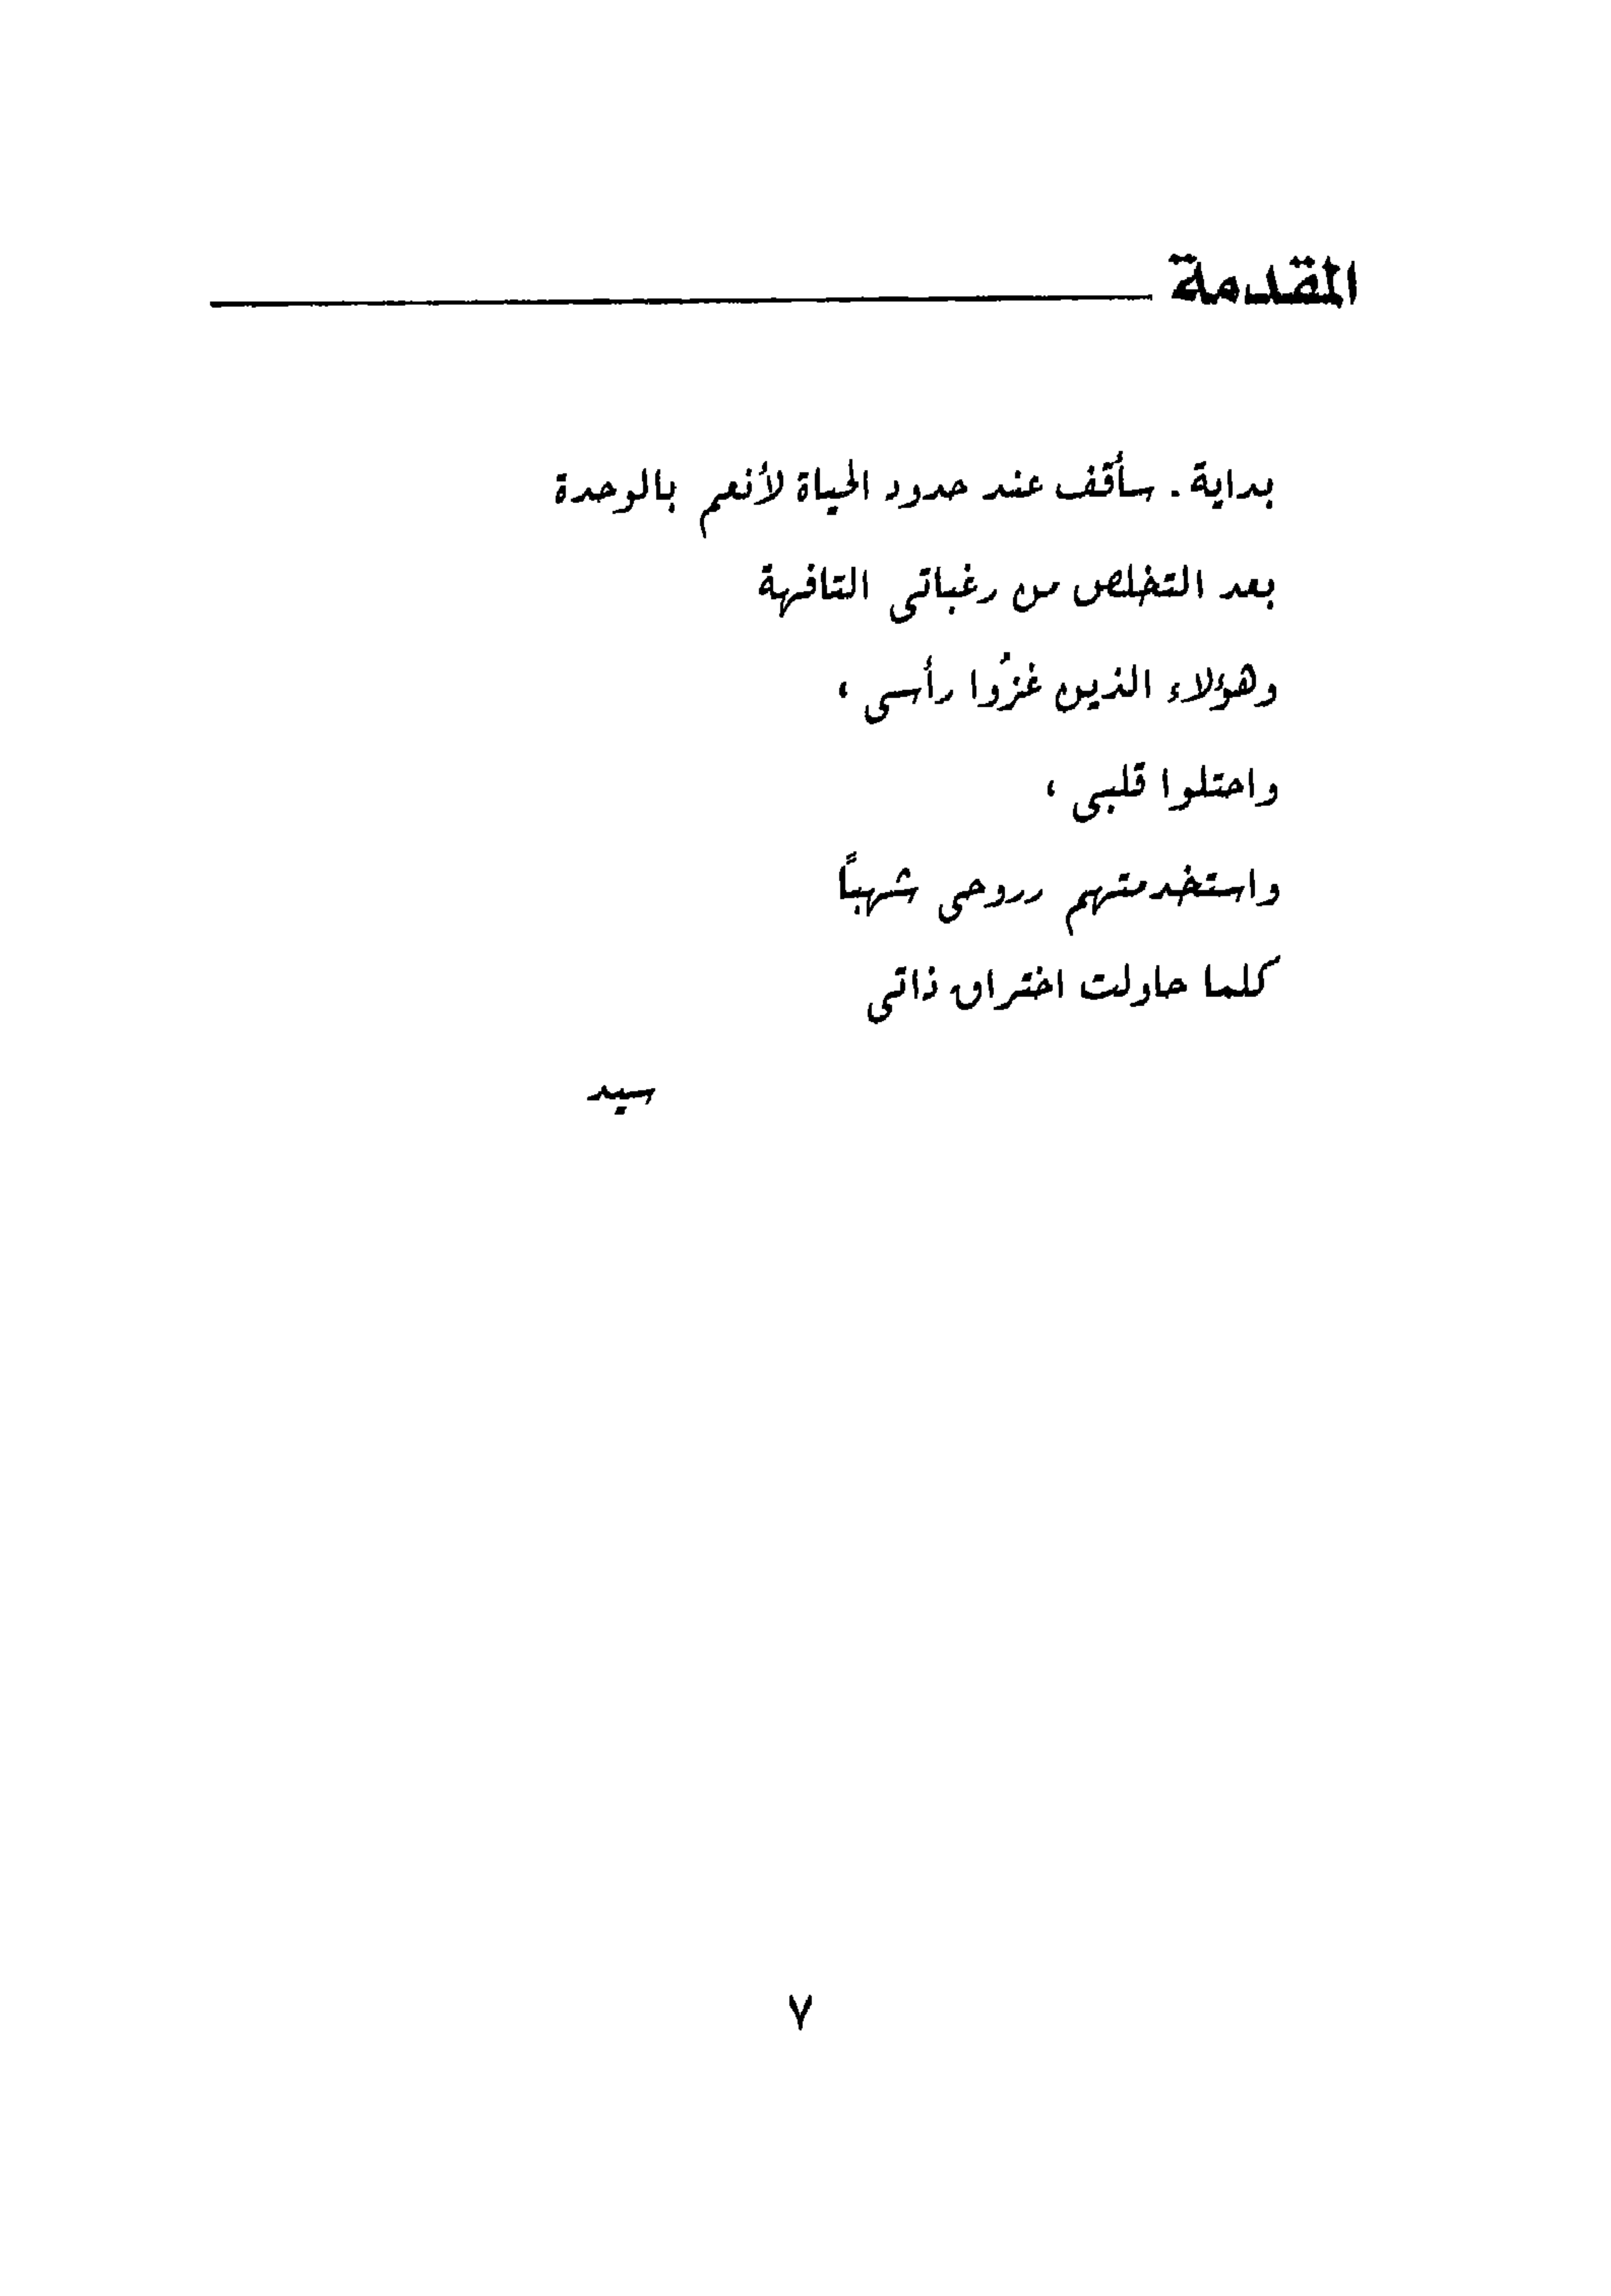 المقدمة
بداية. سأقف عند حدود الحياة لأنعم بالوحدة
بعد التخلص من رغباتى التافهة
وهؤلاء الذين غزُوا رأسى ،
واحتلوا قلبى ،
واستخدمتهم رروحى شهباً
كلما حاولت اختراق ذاتى
سيد
٧